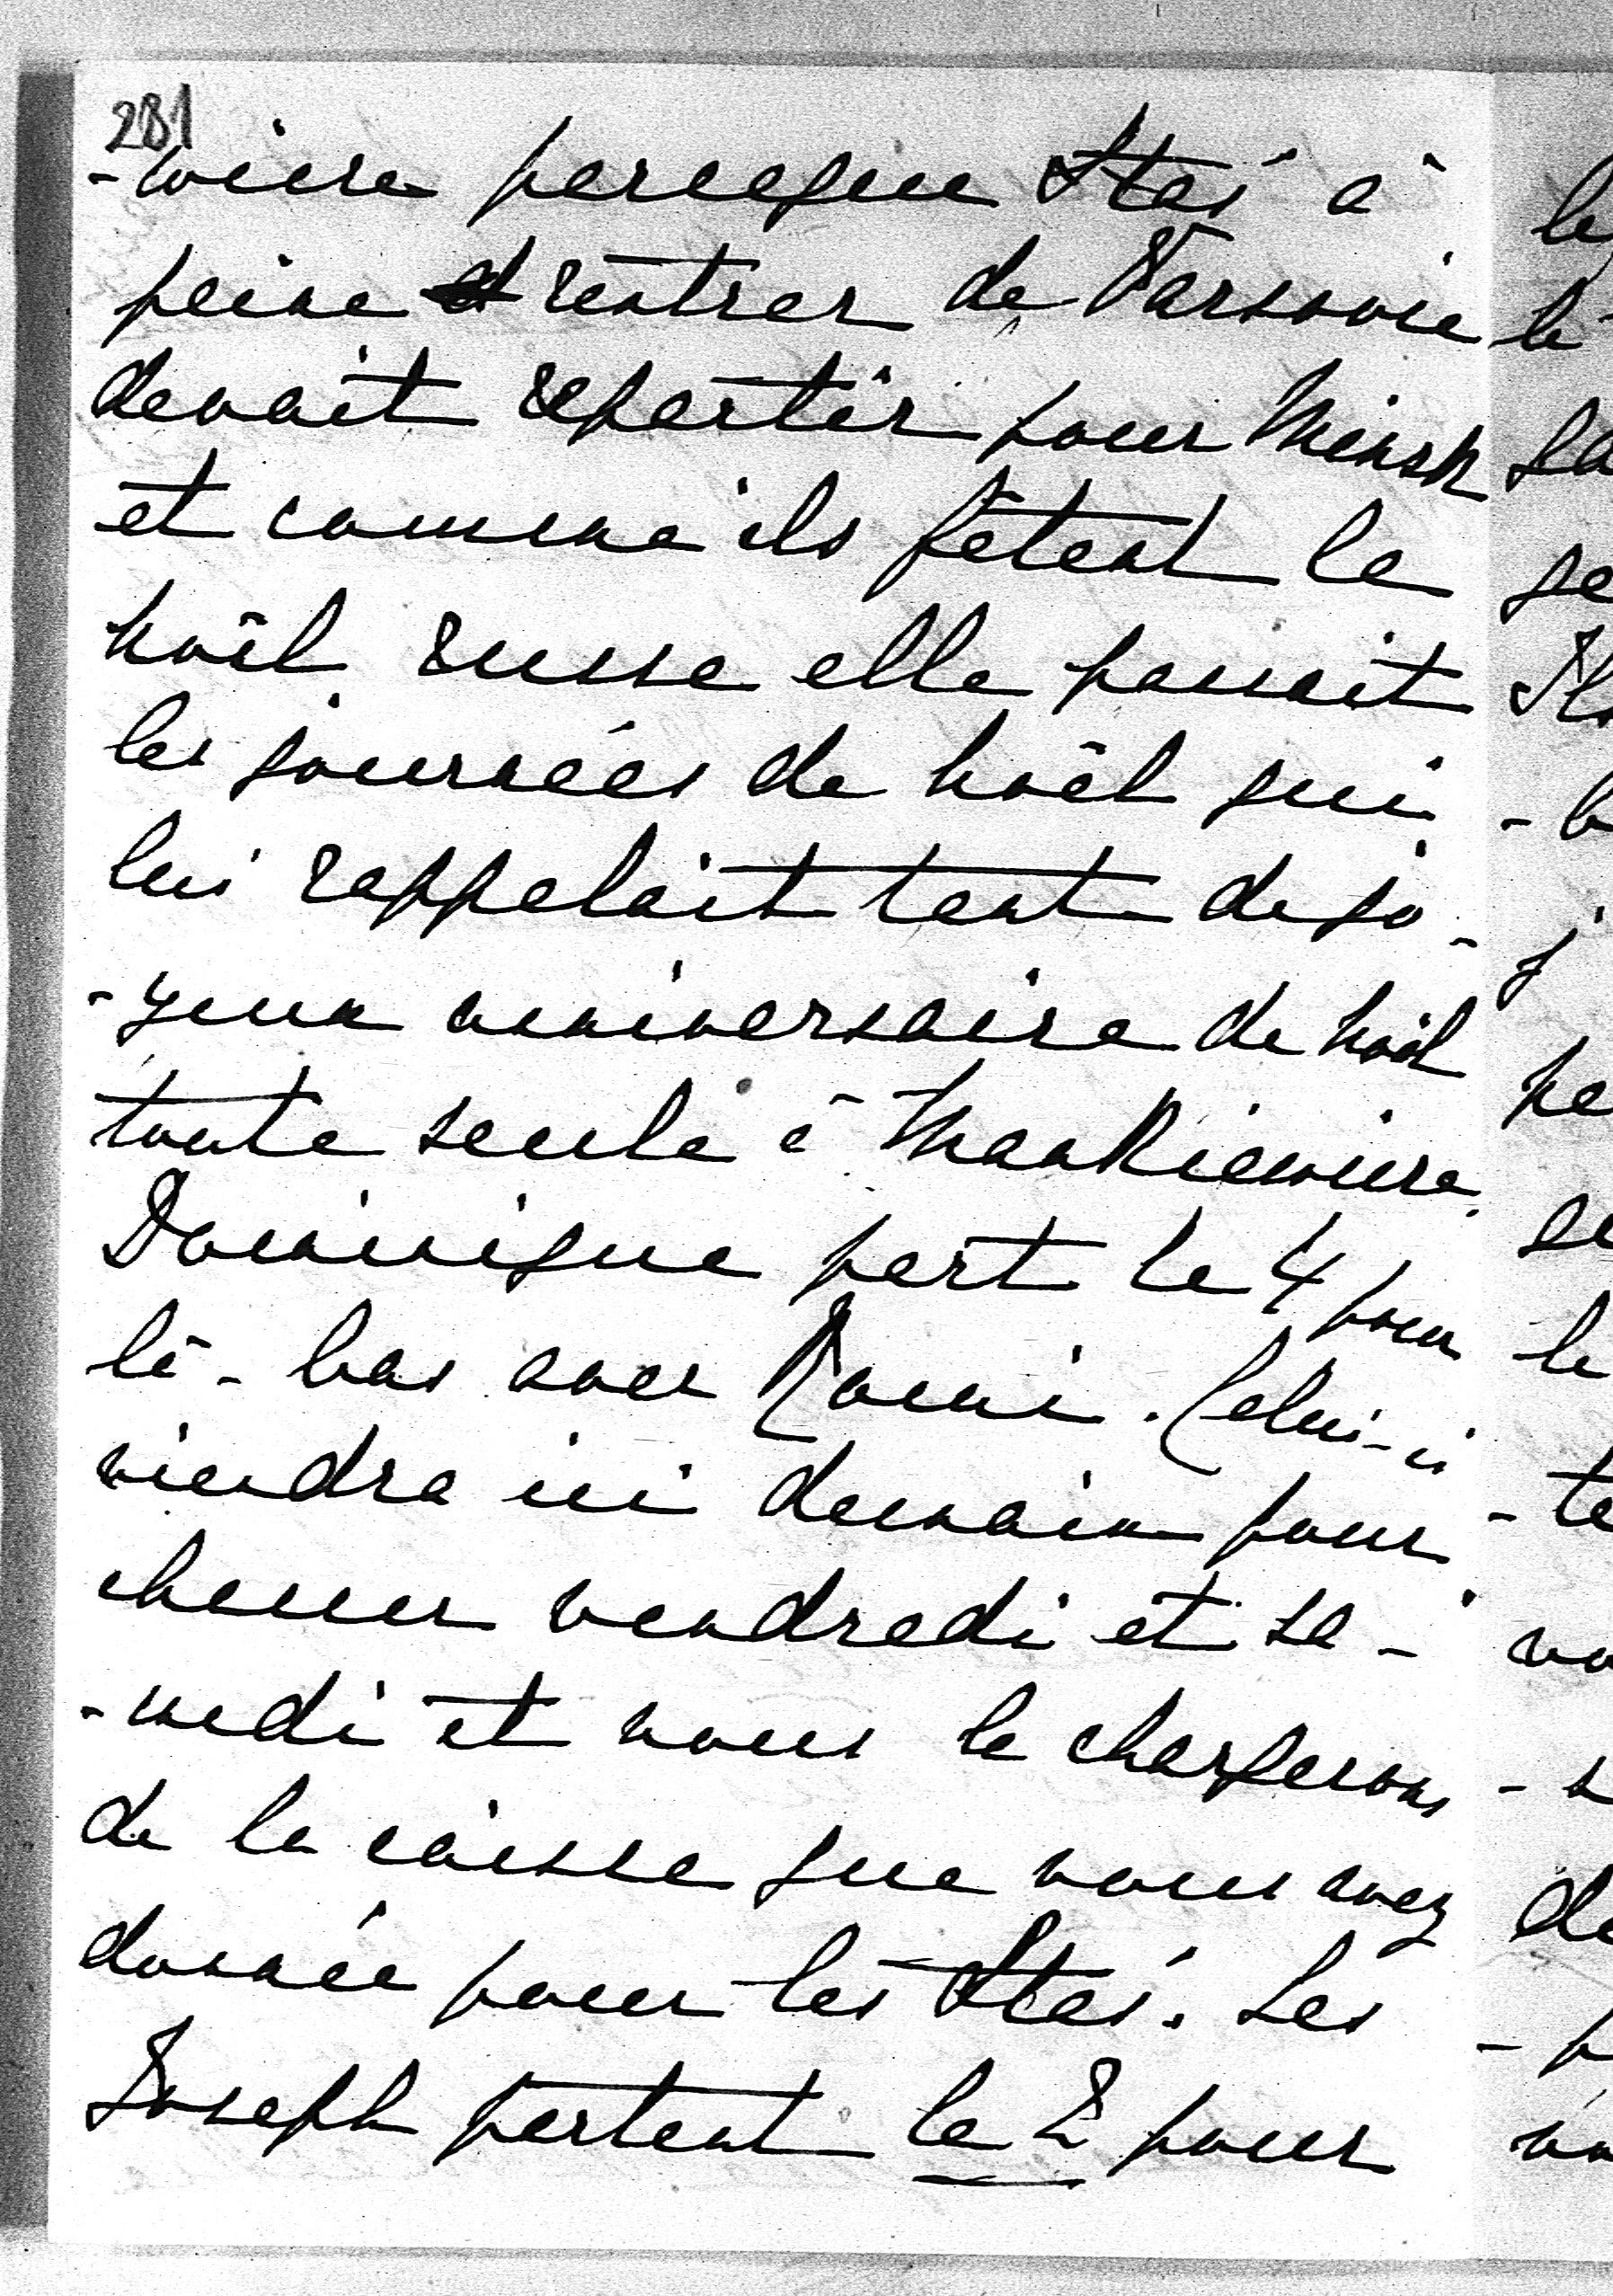 281
-wicze parceque Staś à
peine rentrer de Varsovie
devait repartir pour Minsk
et comme ils fêtent le
noël russe elle passait
les journées de noël qui
lui rappelait tant de jo-
-yeux anniversaire de noël
toute seule à Mankiewicze.
Dominique part le 4 pour
là-bas avec Romi. Celui-ci
viendra ici demain pour
chasser vendredi et sa-
-medi et nous le chargerons
de la caisse que vous avez
donnée pour les Staś. Les
Joseph partent le 2 pour